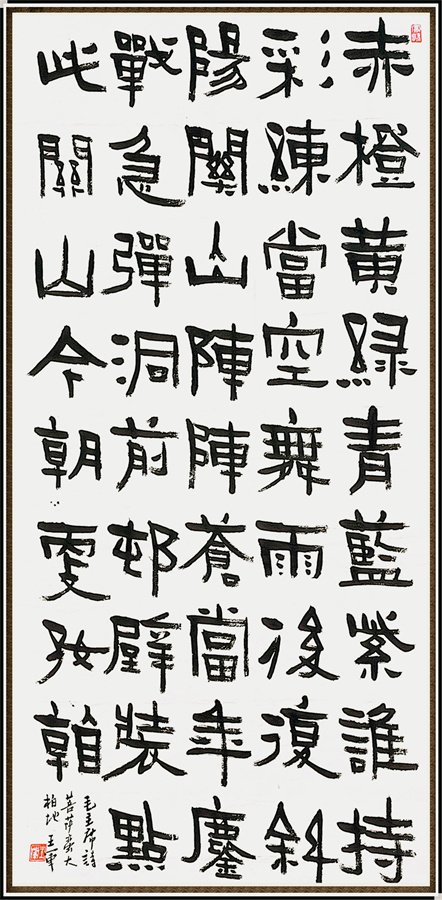 赤橙黄緑青藍紫誰持
彩練當空舞雨後復斜
陽關山陣陣蒼當年鏖
戰急彈洞前邨壁裝點
此關山今朝更好看
毛主席詩
菩萨蛮大
柏地 王軍